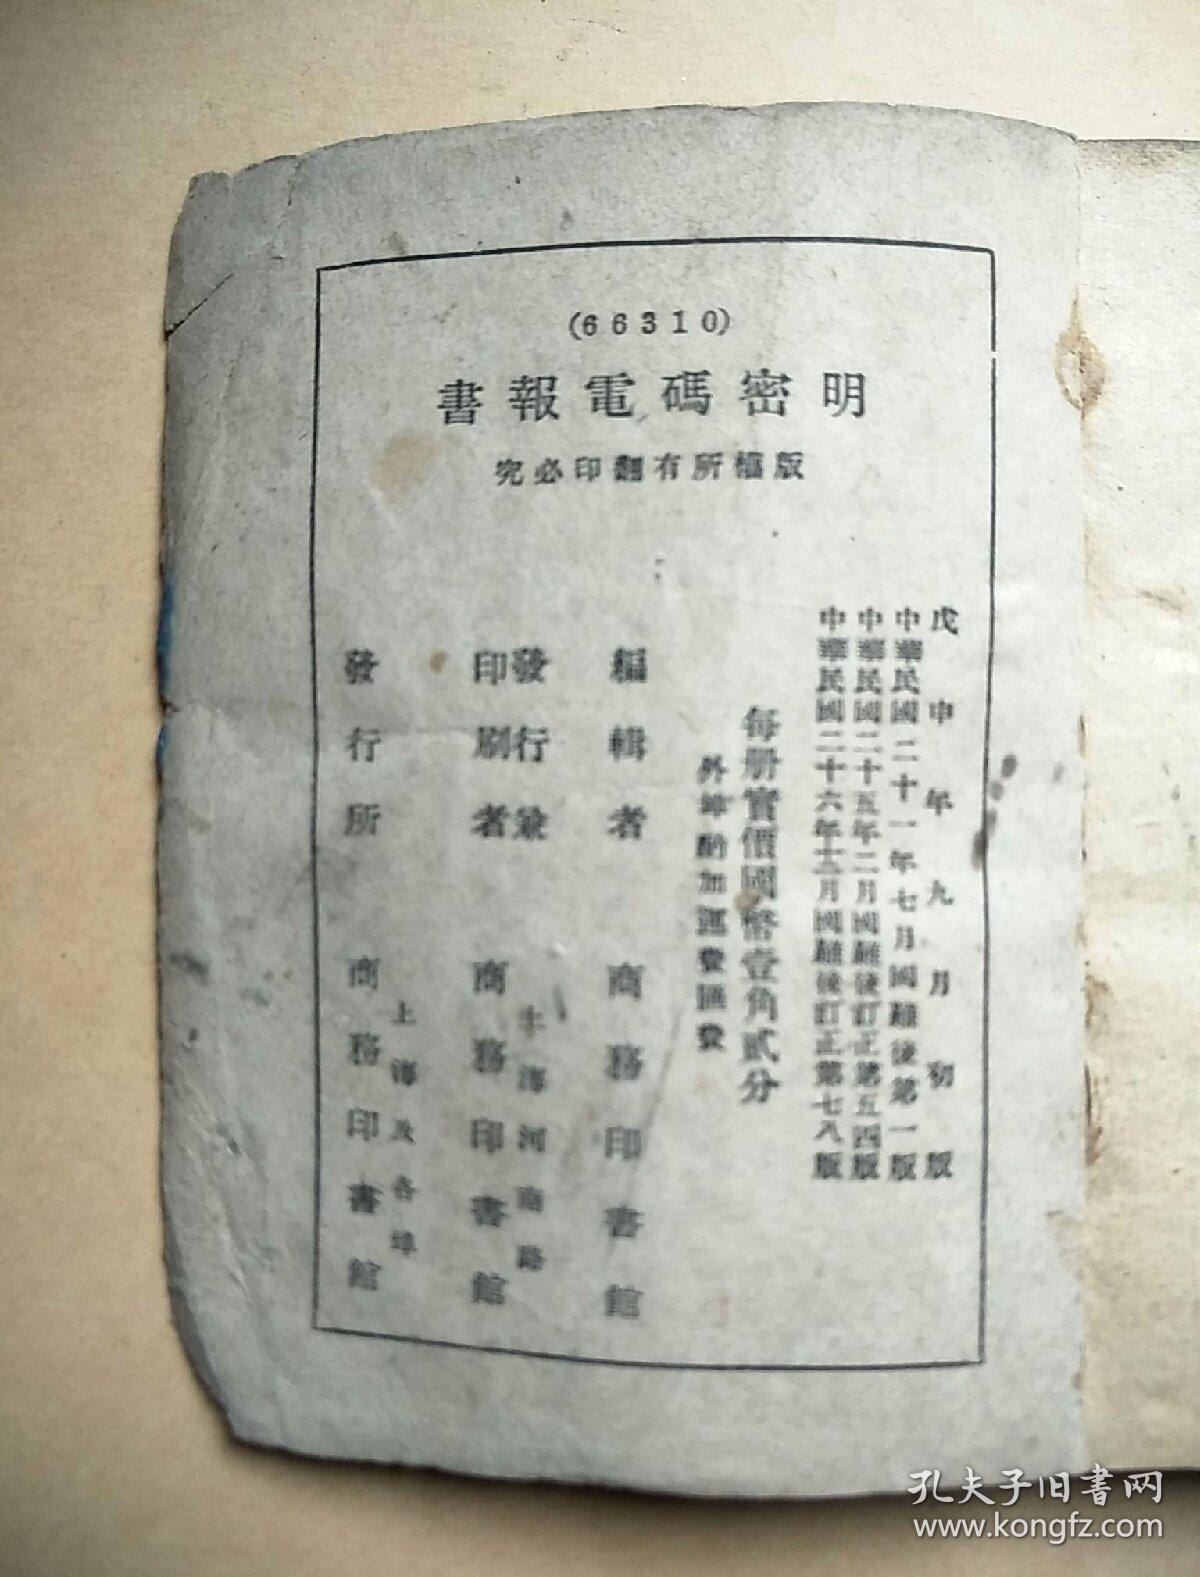 (66310)
明密碼電報書
版權所有翻印必究
戊申年九月初版
中華民國二十一年七月國難後第一版
中華民國二十五年二月國難後訂正第五四版
中華民國二十六年十二月國難後訂正第七八版
每册實價國幣壹角貳分
外埠酌加運費匯費
編輯者 商務印書館
發行兼 上海河南路
印刷者 商務印書館
上海及各埠
發行所 商務印書館
孔夫子旧书网
www.kongfz.com